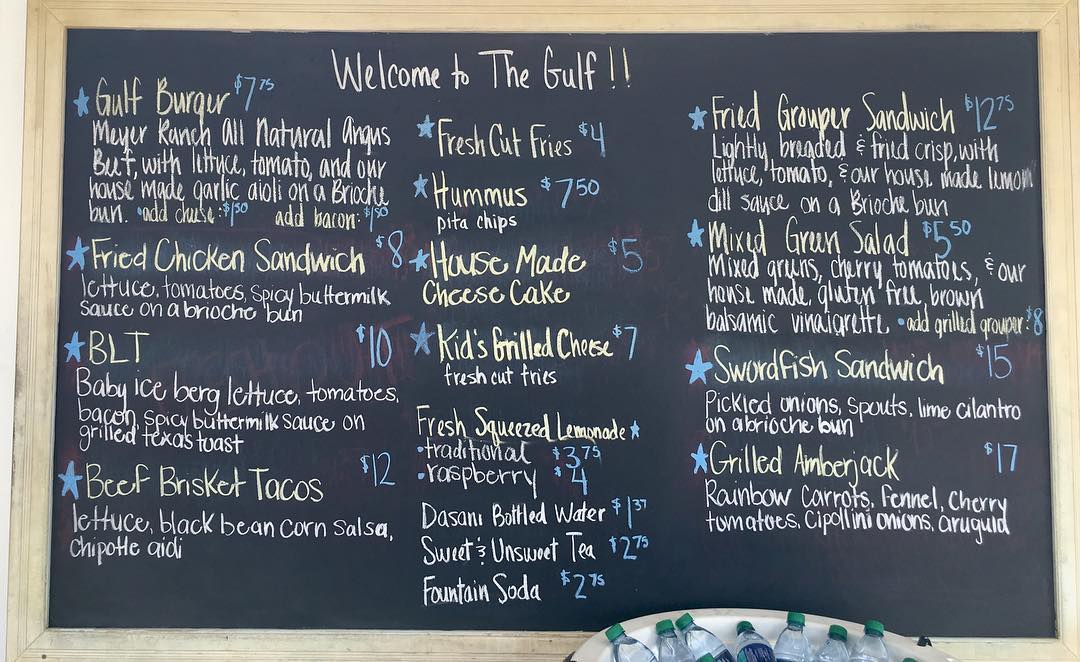 Welcome to The Gulf!!
Gulf Burger $7.75
Meyer Ranch All Natural Angus
Beef, with lettuce, tomato, and our
house made garlic aioli on a Brioche
bun. •add cheese: $1.50 add bacon: $1.50
Fried Chicken Sandwich $8
lettuce, tomatoes, spicy buttermilk
sauce on a brioche bun
BLT $10
Baby ice berg lettuce, tomatoes,
bacon, spicy buttermilk sauce on
grilled texas toast
Beef Brisket Tacos $12
lettuce, black bean corn salsa,
chipotle aioli
Fresh Cut Fries $4
Hummus $7.50
pita chips
House Made $5
Cheese Cake
Kid's Grilled Cheese $7
fresh cut fries
Fresh Squeezed Lemonade
•traditional $3.75
•raspberry $4
Dasani Bottled Water $1.37
Sweet & Unsweet Tea $2.75
Fountain Soda $2.75
Fried Grouper Sandwich $12.75
Lightly breaded & fried crisp, with
lettuce, tomato, & our house made lemon
dill sauce on a Brioche bun
Mixed Green Salad $5.50
Mixed greens, cherry tomatoes, & our
house made, gluten free, brown
balsamic vinaigrette •add grilled grouper: $8
Swordfish Sandwich $15
Pickled onions, spouts, lime cilantro
on a brioche bun
Grilled Amberjack $17
Rainbow Carrots, Fennel, Cherry
tomatoes, Cipollini onions, arugula